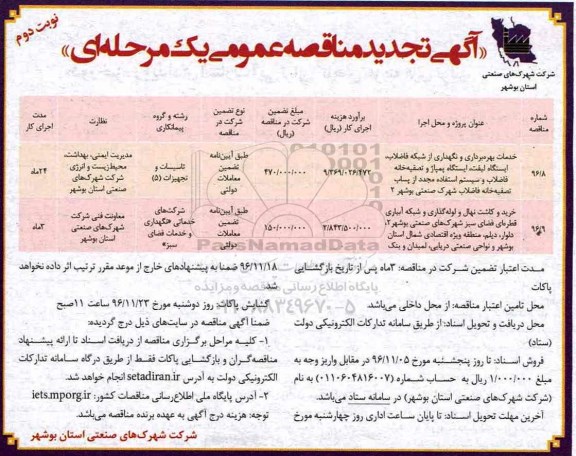 نوبت دوم
«آگهی تجدید مناقصه عمومی یک مرحله‌ای»
شرکت شهرک‌های صنعتی
استان بوشهر
شماره مناقصه
عنوان پروژه و محل اجرا
برآورد هزینه اجرای کار (ریال)
مبلغ تضمین شرکت در مناقصه (ریال)
نوع تضمین شرکت در مناقصه
رشته و گروه پیمانکاری
نظارت
مدت اجرای کار
۹۶/۸
خدمات بهره‌برداری و نگهداری از شبکه فاضلاب،
ایستگاه لیفت، ایستگاه پمپاژ و تصفیه‌خانه
فاضلاب و سیستم استفاده مجدد از پساب
تصفیه‌خانه فاضلاب شهرک صنعتی بوشهر ۲
۹/۳۶۹/۰۲۶/۴۷۲
۴۷۰/۰۰۰/۰۰۰
طبق آیین‌نامه
تضمین
معاملات
دولتی
تاسیسات و
تجهیزات (۵)
مدیریت ایمنی، بهداشت،
محیط‌زیست و انرژی
شرکت شهرک‌های
صنعتی استان بوشهر
۲۴ماه
۹۶/۹
خرید و کاشت نهال و لوله‌گذاری و شبکه آبیاری
قطره‌ای فضای سبز شهرک‌های صنعتی بوشهر۲،
دلوار، دیلم، منطقه ویژه اقتصادی شمال استان
بوشهر و نواحی صنعتی دریایی، لمبدان و بنک
۲/۸۴۳/۵۰۰/۰۰۰
۱۵۰/۰۰۰/۰۰۰
طبق آیین‌نامه
تضمین
معاملات
دولتی
شرکت‌های
خدماتی «نگهداری
و خدمات فضای
سبز»
معاونت فنی شرکت
شهرک‌های صنعتی
استان بوشهر
۳ماه
مدت اعتبار تضمین شرکت در مناقصه: ۳ماه پس از تاریخ بازگشایی
پاکات
محل تامین اعتبار مناقصه: از محل داخلی می‌باشد.
محل دریافت و تحویل اسناد: از طریق سامانه تدارکات الکترونیکی دولت
(ستاد)
فروش اسناد: تا روز پنجشنبه مورخ ۹۶/۱۱/۰۵ در مقابل واریز وجه به
مبلغ ۱/۰۰۰/۰۰۰ ریال به حساب شماره (۰۱۱۰۶۰۴۸۱۶۰۰۷) به نام
(شرکت شهرک‌های صنعتی استان بوشهر) در سامانه ستاد می‌باشد.
آخرین مهلت تحویل اسناد: تا پایان ساعت اداری روز چهارشنبه مورخ
۹۶/۱۱/۱۸ ضمنا به پیشنهادهای خارج از موعد مقرر ترتیب اثر داده نخواهد
شد
گشایش پاکات: روز دوشنبه مورخ ۹۶/۱۱/۲۳ ساعت ۱۱صبح
ضمنا آگهی مناقصه در سایت‌های ذیل درج گردیده:
۱- کلیه مراحل برگزاری مناقصه از دریافت اسناد تا ارائه پیشنهاد
مناقصه‌گران و بازگشایی پاکات فقط از طریق درگاه سامانه تدارکات
الکترونیکی دولت به آدرس setadiran.ir انجام خواهد شد.
۲- آدرس پایگاه ملی اطلاع‌رسانی مناقصات کشور: iets.mporg.ir
توجه: هزینه درج آگهی به عهده برنده مناقصه می‌باشد.
شرکت شهرک‌های صنعتی استان بوشهر
ParsNamadData